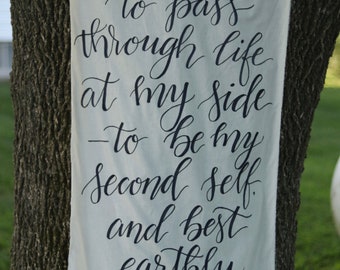 to pass
through life
at my side
—to be my
second self,
and best
earthly